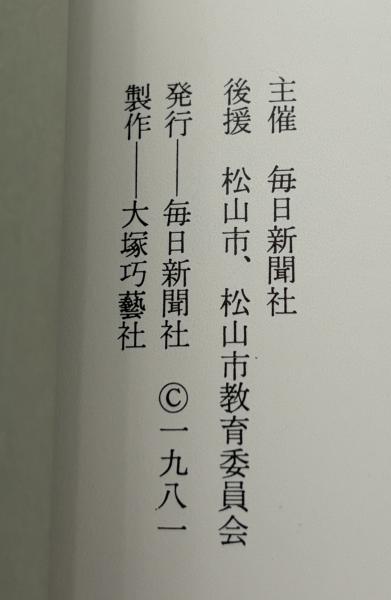 主催　毎日新聞社
後援　松山市、松山市教育委員会
発行――毎日新聞社　©一九八一
製作――大塚巧藝社